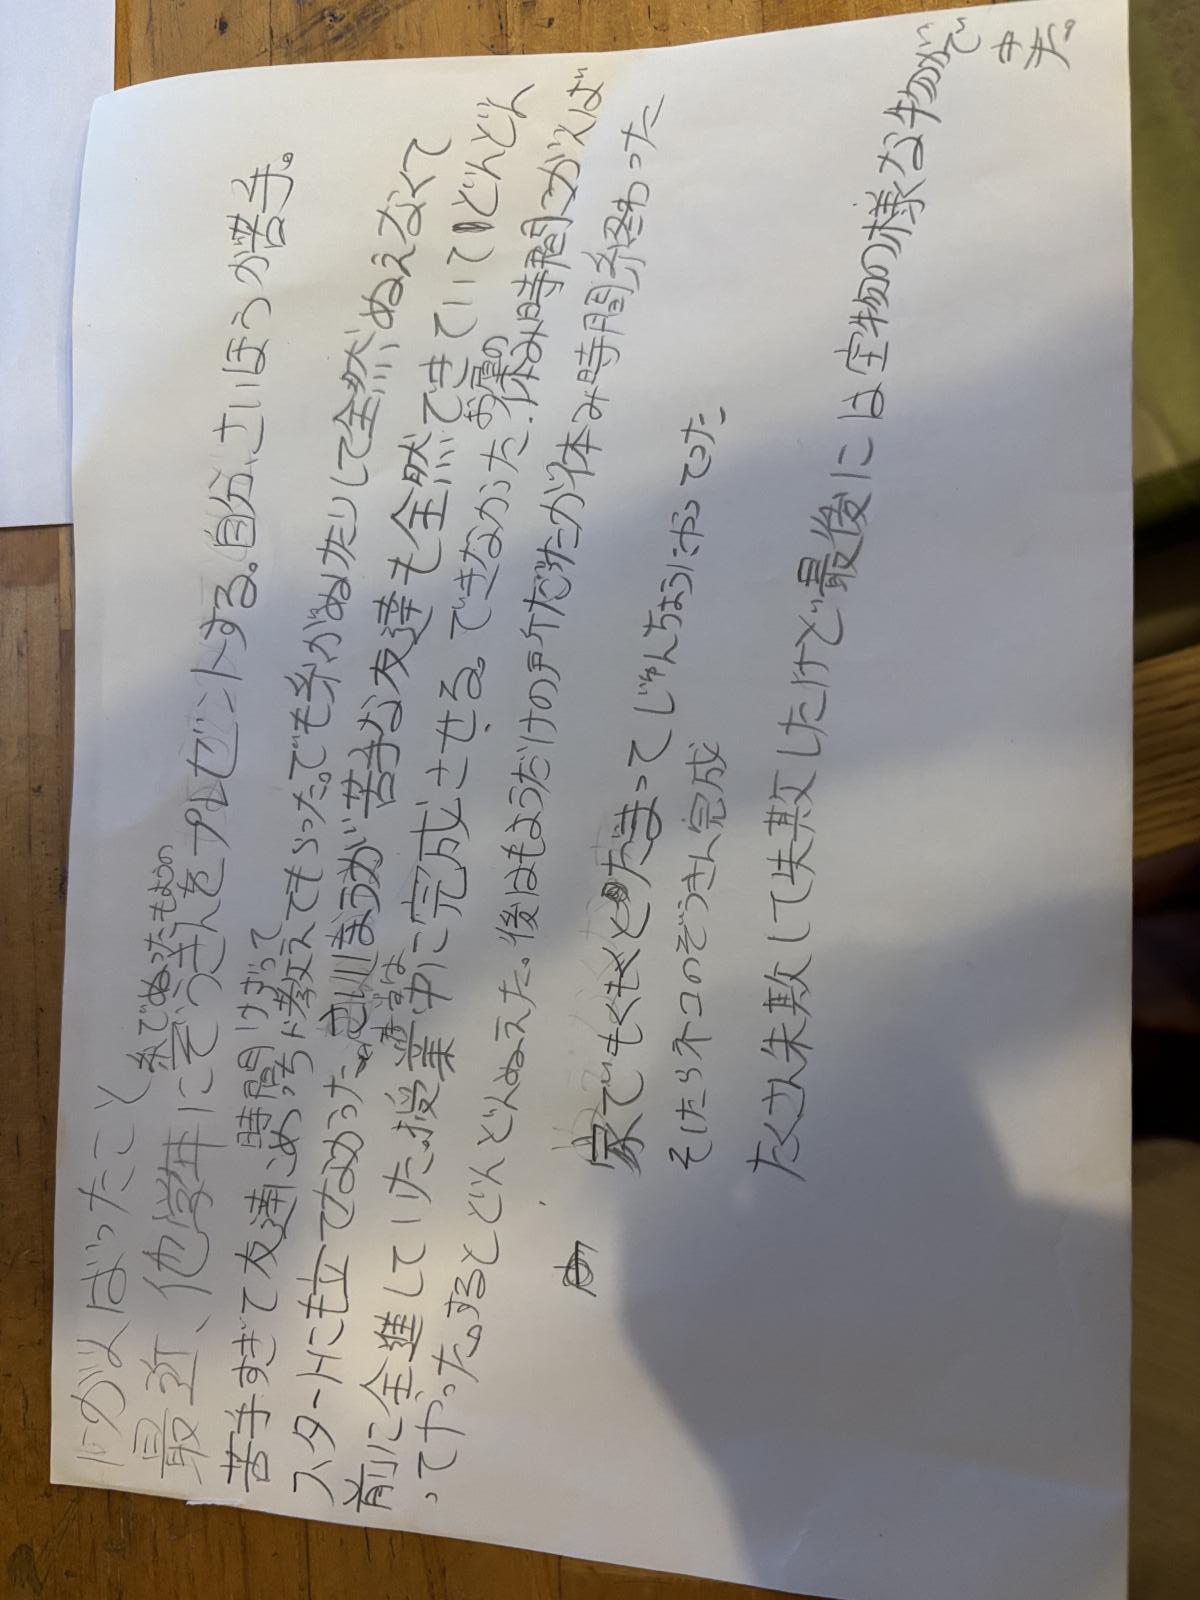 がんばったこと
最近、他学年に糸でぬったもようのぞうきんをプレゼントする。自分、さいほうが苦手。
苦手すぎて友達にめっちゃ時間けずって教えてもらった。でも糸がぬけたりして全然ぬえなくて
スタートにも立てなかった。さいほうが苦手な友達も全然できていてどんどん
前に全進していた。授業中に完成させる。できなかった。お昼の休み時間がんば
ってやった。するとどんどんぬえた。後はもようだけの所だったが休み時間終わった
家でもくもくとだまってじゅんちょうにやってった
そしたらネコのぞうきん完成
たくさん失敗して失敗したけど最後には宝物の様な物ができ
た